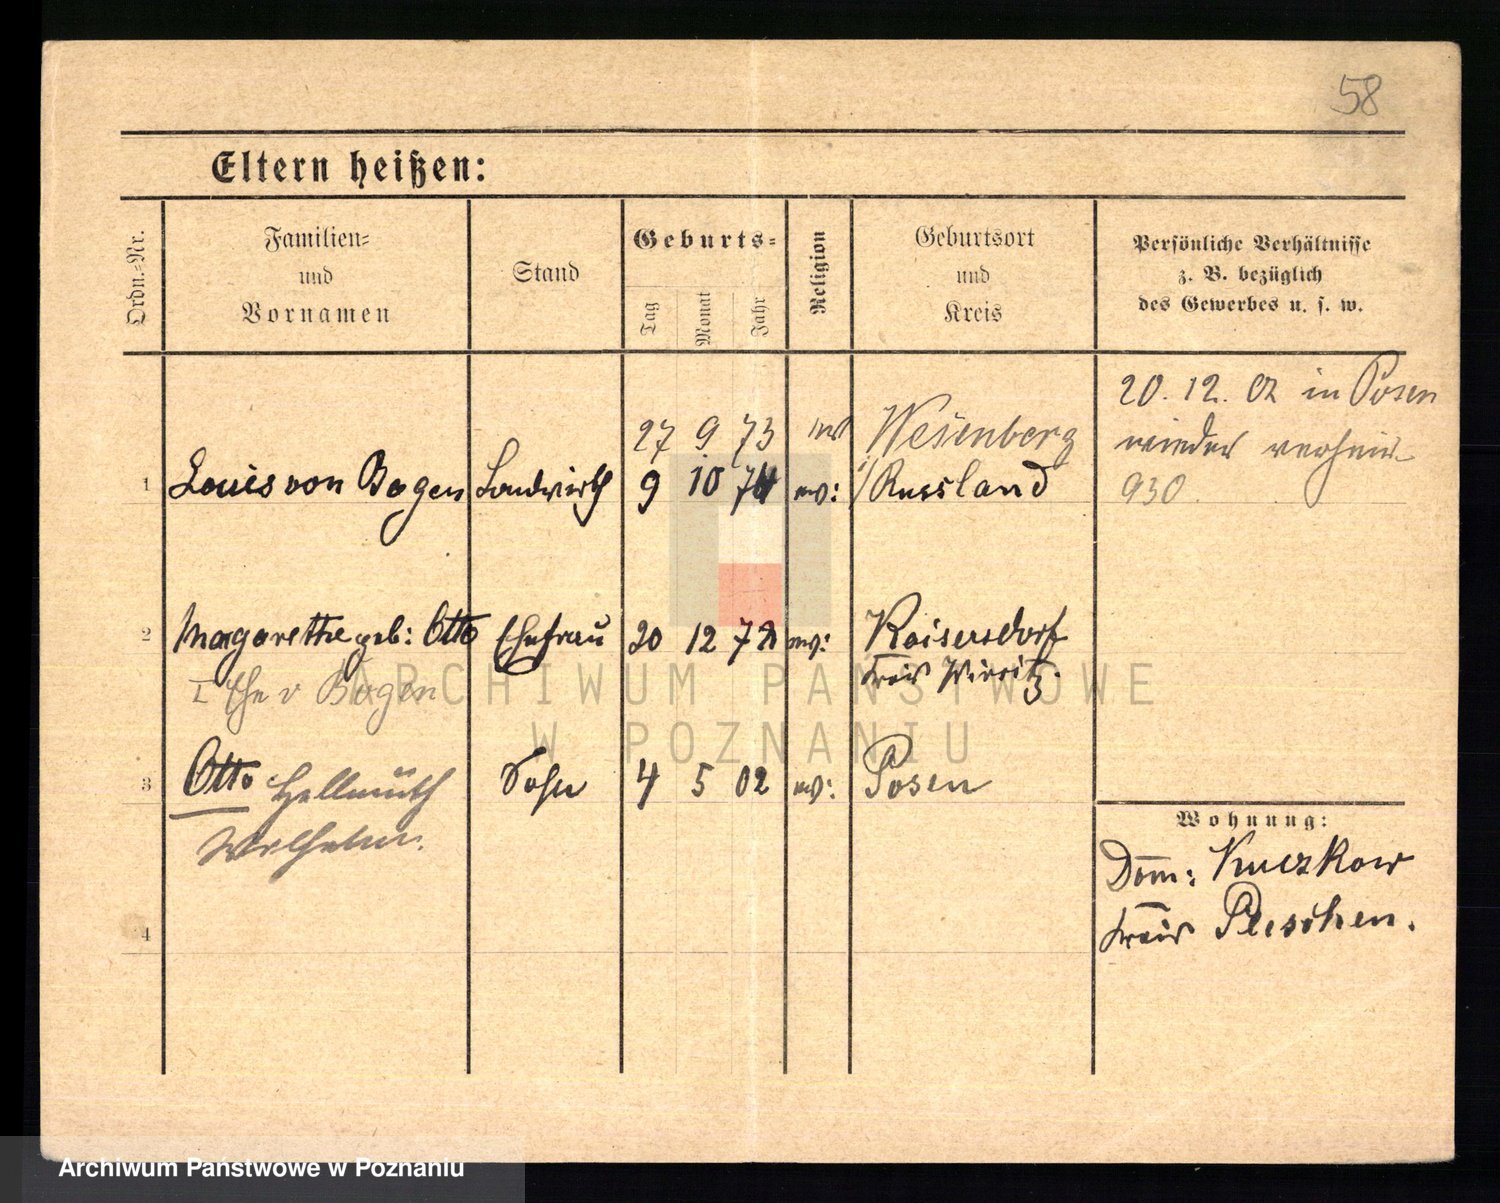 58
Eltern heißen:
Ordn.-Nr.
Familien-
und
Vornamen
Stand
Geburts-
Tag
Monat
Jahr
Religion
Geburtsort
und
Kreis
Persönliche Verhältnisse
z. B. bezüglich
des Gewerbes u. s. w.
27 9 73 Wesenberg
20. 12. 02 in Posen
wieder verheir.
930
1 Louis von Bogen Landwirth 9 10 74 ev: i/ Russland
2 Margarethe geb: Otto Ehefrau 20 12 72 ev: Kaisersdorf
Kreis Wirsitz.
I Ehe v Bogen
3 Otto Hellmuth Sohn 4 5 02 ev: Posen
Wilhelm.
4
Wohnung:
Dom: Kuczkow
Kreis Pleschen.
ARCHIWUM PAŃSTWOWE
W POZNANIU
Archiwum Państwowe w Poznaniu